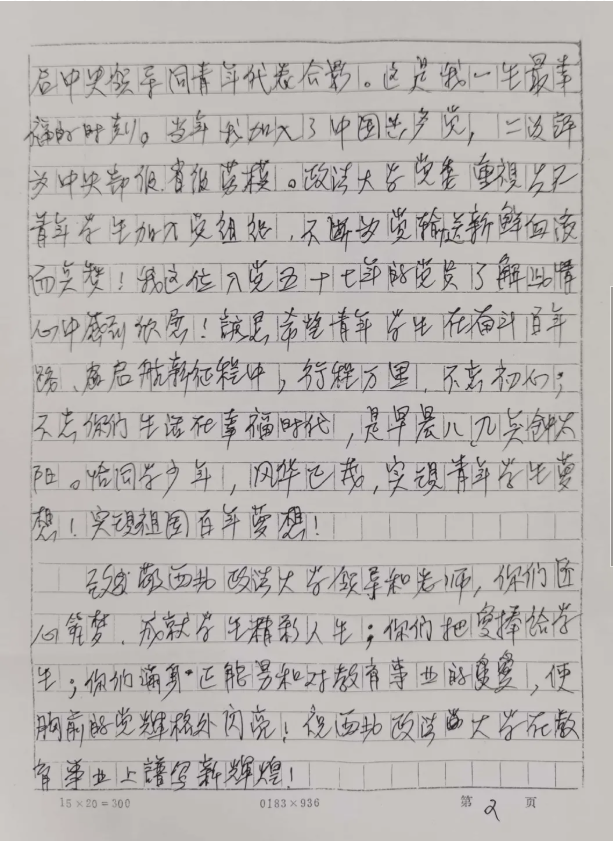 后中央领导同青年代表合影。这是我一生最幸
福的时刻。当年我加入了中国共产党，二次评
为中央部级省级劳模。政法大学党委重视
青年学生加入党组织，不断为党输送新鲜血液
而点赞！我这位入党五十七年的党员了解此情
心中感到欣慰！希望青年学生在奋斗百年
路、启航新征程中，行程万里，不忘初心；
不忘你们生活在幸福时代，是早晨八九点钟太
阳。恰同学少年，风华正茂，实现青年学生梦
想！实现祖国百年梦想！
致敬西北政法大学领导和老师，你们匠
心筑梦，成就学生精彩人生；你们把爱捧给学
生；你们满身正能量和对教育事业的爱，使
胸前的党辉格外闪亮！祝西北政法大学在教
育事业上谱写新辉煌！
15×20=300 0183×936 第 2 页